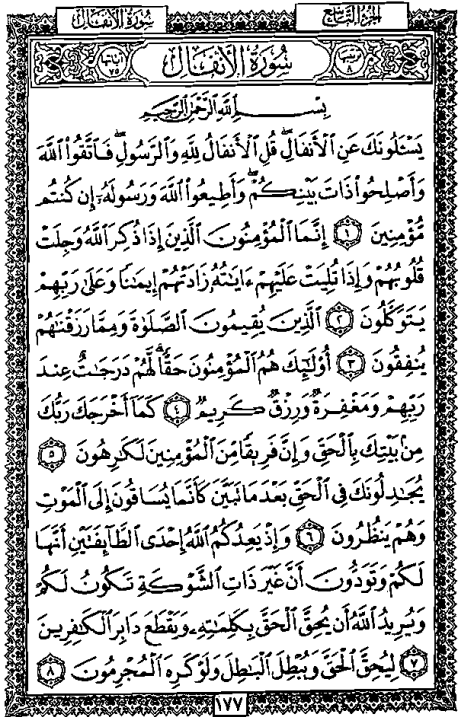 سورة الأنفال
الجزء التاسع
ترتيبها ٨
سُورَةُ الأَنفَال
آياتها ٧٥
بِسْمِ اللَّهِ الرَّحْمَٰنِ الرَّحِيمِ
يَسْـَٔلُونَكَ عَنِ ٱلْأَنفَالِ ۖ قُلِ ٱلْأَنفَالُ لِلَّهِ وَٱلرَّسُولِ ۖ فَٱتَّقُوا۟ ٱللَّهَ
وَأَصْلِحُوا۟ ذَاتَ بَيْنِكُمْ ۖ وَأَطِيعُوا۟ ٱللَّهَ وَرَسُولَهُۥٓ إِن كُنتُم
مُّؤْمِنِينَ ١ إِنَّمَا ٱلْمُؤْمِنُونَ ٱلَّذِينَ إِذَا ذُكِرَ ٱللَّهُ وَجِلَتْ
قُلُوبُهُمْ وَإِذَا تُلِيَتْ عَلَيْهِمْ ءَايَٰتُهُۥ زَادَتْهُمْ إِيمَٰنًا وَعَلَىٰ رَبِّهِمْ
يَتَوَكَّلُونَ ٢ ٱلَّذِينَ يُقِيمُونَ ٱلصَّلَوٰةَ وَمِمَّا رَزَقْنَٰهُمْ
يُنفِقُونَ ٣ أُو۟لَٰٓئِكَ هُمُ ٱلْمُؤْمِنُونَ حَقًّا ۚ لَّهُمْ دَرَجَٰتٌ عِندَ
رَبِّهِمْ وَمَغْفِرَةٌ وَرِزْقٌ كَرِيمٌ ٤ كَمَآ أَخْرَجَكَ رَبُّكَ
مِنۢ بَيْتِكَ بِٱلْحَقِّ وَإِنَّ فَرِيقًا مِّنَ ٱلْمُؤْمِنِينَ لَكَٰرِهُونَ ٥
يُجَٰدِلُونَكَ فِى ٱلْحَقِّ بَعْدَ مَا تَبَيَّنَ كَأَنَّمَا يُسَاقُونَ إِلَى ٱلْمَوْتِ
وَهُمْ يَنظُرُونَ ٦ وَإِذْ يَعِدُكُمُ ٱللَّهُ إِحْدَى ٱلطَّآئِفَتَيْنِ أَنَّهَا
لَكُمْ وَتَوَدُّونَ أَنَّ غَيْرَ ذَاتِ ٱلشَّوْكَةِ تَكُونُ لَكُمْ
وَيُرِيدُ ٱللَّهُ أَن يُحِقَّ ٱلْحَقَّ بِكَلِمَٰتِهِۦ وَيَقْطَعَ دَابِرَ ٱلْكَٰفِرِينَ
٧ لِيُحِقَّ ٱلْحَقَّ وَيُبْطِلَ ٱلْبَٰطِلَ وَلَوْ كَرِهَ ٱلْمُجْرِمُونَ ٨
١٧٧